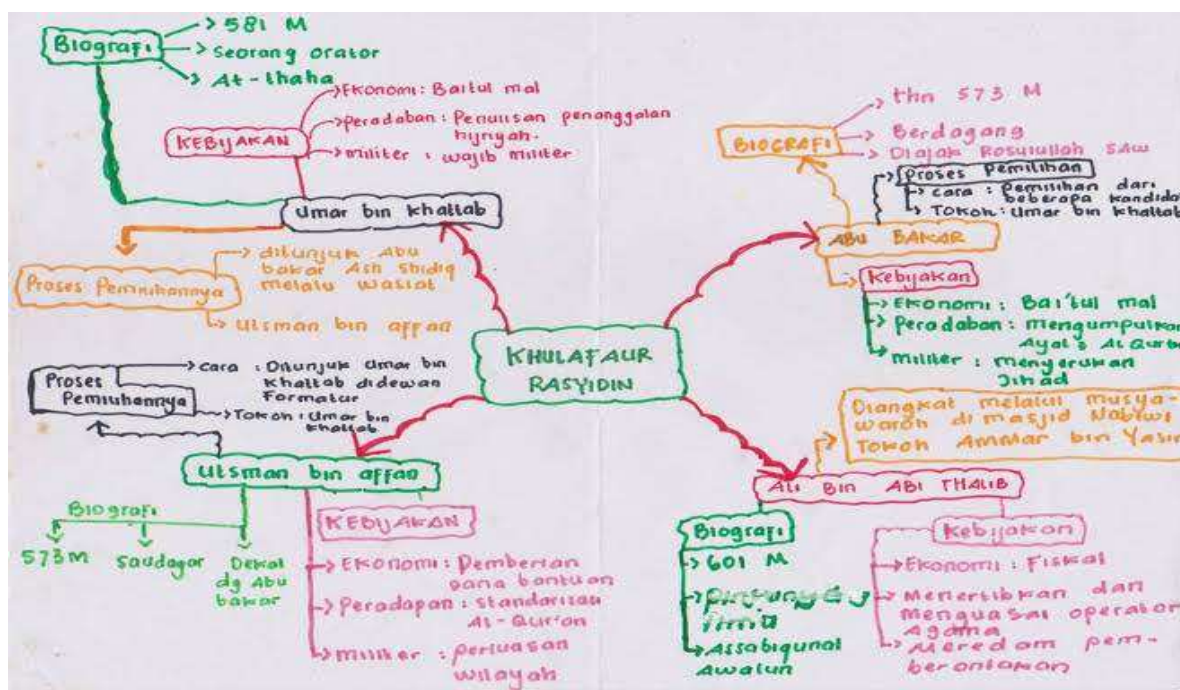 KHULAFAUR
RASYIDIN
Umar bin Khattab
Biografi
581 M
Seorang orator
At-thaha
KEBIJAKAN
Ekonomi : Baitul mal
Peradaban : Penulisan penanggalan
hijriyah.
militer : wajib militer
Proses Pemilihannya
ditunjuk Abu
bakar Ash Shidiq
melalui wasiat
Utsman bin affan
ABU BAKAR
BIOGRAFI
thn 573 M
Berdagang
Diajak Rosulullah SAW
Proses Pemilihan
cara : Pemilihan dari
beberapa kandidat
TOKOH : Umar bin khattab
Kebijakan
Ekonomi : Bai'tul mal
Peradaban : mengumpulkan
Ayat2 Al Qur'an
militer : menyerukan
Jihad
Utsman bin affan
Proses
Pemilihannya
cara : Ditunjuk Umar bin
Khattab didewan
Formatur
Tokoh : Umar bin
khattab
Biografi
573 M
Saudagar
Dekat
dg Abu
bakar
KEBIJAKAN
Ekonomi : Pemberian
dana bantuan
Peradapan : standarisasi
Al-Qur'an
militer : perluasan
wilayah
ALI BIN ABI THALIB
Diangkat melalui musya-
waroh di masjid Nabawi
Tokoh Ammar bin Yasir
Biografi
601 M
Assabiqunal
Awalun
Kebijakan
Ekonomi : Fiskal
Menertibkan dan
menguasai operator
Agama
Meredam pem-
berontakan